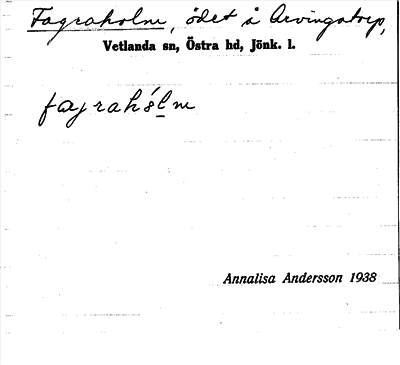 Fagraholm, ödet å Arvingatorp,
Vetlanda sn, Östra hd, Jönk. l.
fagrahólm
Annalisa Andersson 1938